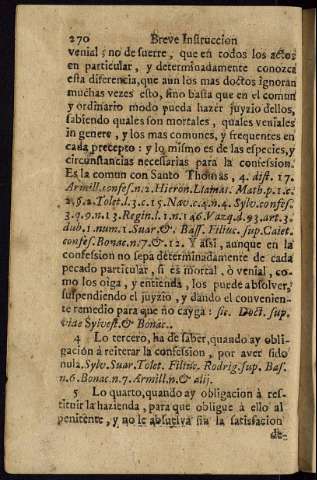 270 Breve Instruccion
venial; no de suerre, que en todos los actos
en particular, y determinadamente conozca
esta diferencia, que aun los mas doctos ignoran
muchas vezes esto, sino basta que en el comun
y ordinario modo pueda hazer juyzio dellos,
sabiendo quales son mortales, quales veniales
in genere, y los mas comunes, y frequentes en
cada precepto: y lo mismo es de las especies, y
circunstancias necessarias para la confession.
Es la comun con Santo Thomas, 4. dist. 17.
Armill. confes. n. 2. Hieron. Llamas. Math. p. 1. c.
2. §. 2. Tolet. l. 3. c. 15. Nav. c. 4. n. 4. Sylv. confes.
3. q. 9. n. 13. Regin. l. 1. n. 146. Vazq. d. 93. art. 3.
dub. 1. num. 1. Suar. & Bass. Filiuc. sup. Caiet.
confes. Bonac. n. 7. & 12. Y assi, aunque en la
confession no sepa determinadamente de cada
pecado particular, si es mortal, ò venial, co-
mo los oiga, y entienda, los puede absolver,
suspendiendo el juyzio, y dando el convenien-
te remedio para que no cayga: sic. Doct. sup.
viae Sylvest. & Bonac.
4 Lo tercero, ha de saber, quando ay obli-
gación à reiterar la confession, por aver sido
nula. Sylv. Suar. Tolet. Filiuc. Rodrig. sup. Bas.
n. 6. Bonac. n. 7. Armill. n. & alij.
5 Lo quarto, quando ay obligacion à res-
tituir la hazienda, para que obligue à ello al
penitente, y no le absuelva sin la satisfacion
de-